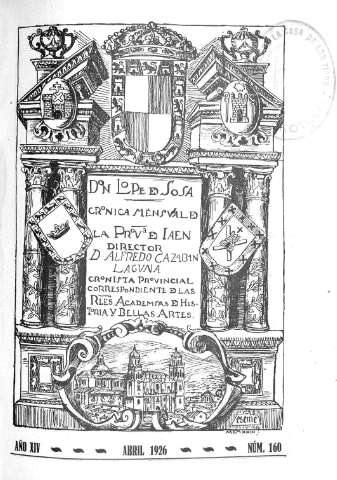 DON LOPE D SOSA
CRONICA MENSVAL D
LA PROVª D IAEN
DIRECTOR
D. ALFREDO CAZABAN
LAGUNA
CRONISTA PROVINCIAL
CORRESPONDIENTE D LAS
RLES ACADEMIAS D HIS-
TORIA Y BELLAS ARTES.
CASA DE
AÑO XIV
ABRIL 1926
NÚM. 160